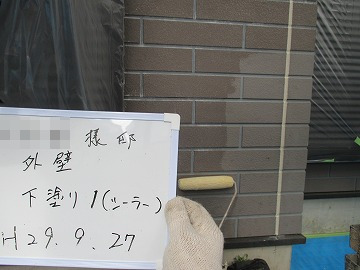 様邸
外壁
下塗り1(シーラー)
H29.9.27